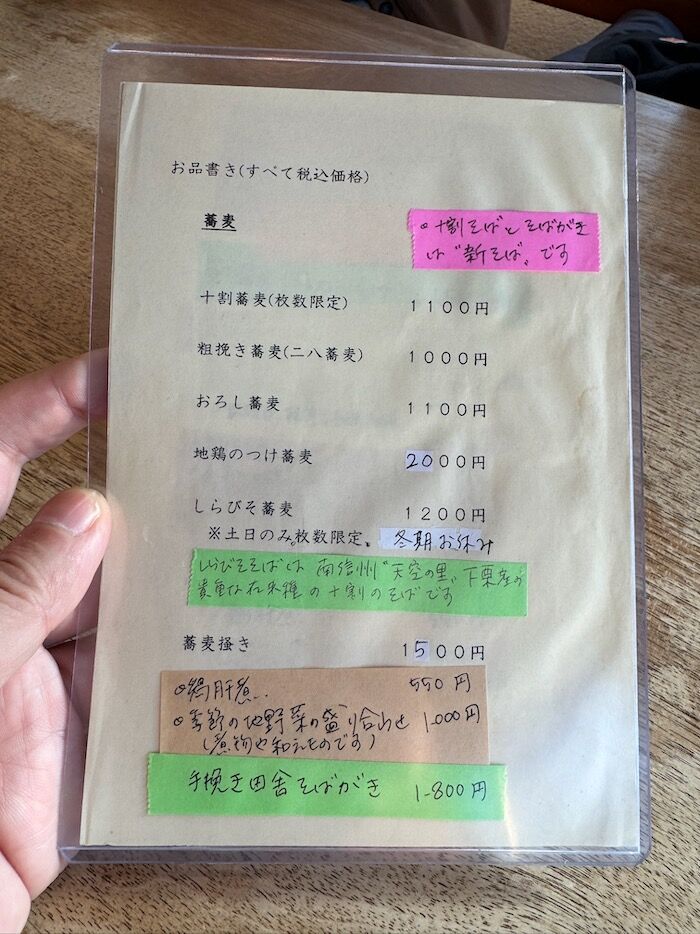 お品書き(すべて税込価格)
蕎麦
◎十割そばとそばがき
は"新そば"です
十割蕎麦(枚数限定) 1100円
粗挽き蕎麦(二八蕎麦) 1000円
おろし蕎麦 1100円
地鶏のつけ蕎麦 2000円
しらびそ蕎麦 1200円
※土日のみ。枚数限定。冬期お休み
しらびそそばは 南信州"天空の里"下栗産の
貴重な在来種の十割のそばです
蕎麦掻き 1500円
◎鶏肝煮.. 550円
◎季節の地野菜の盛り合わせ 1000円
(煮物や和えものです)
手挽き田舎そばがき 1800円